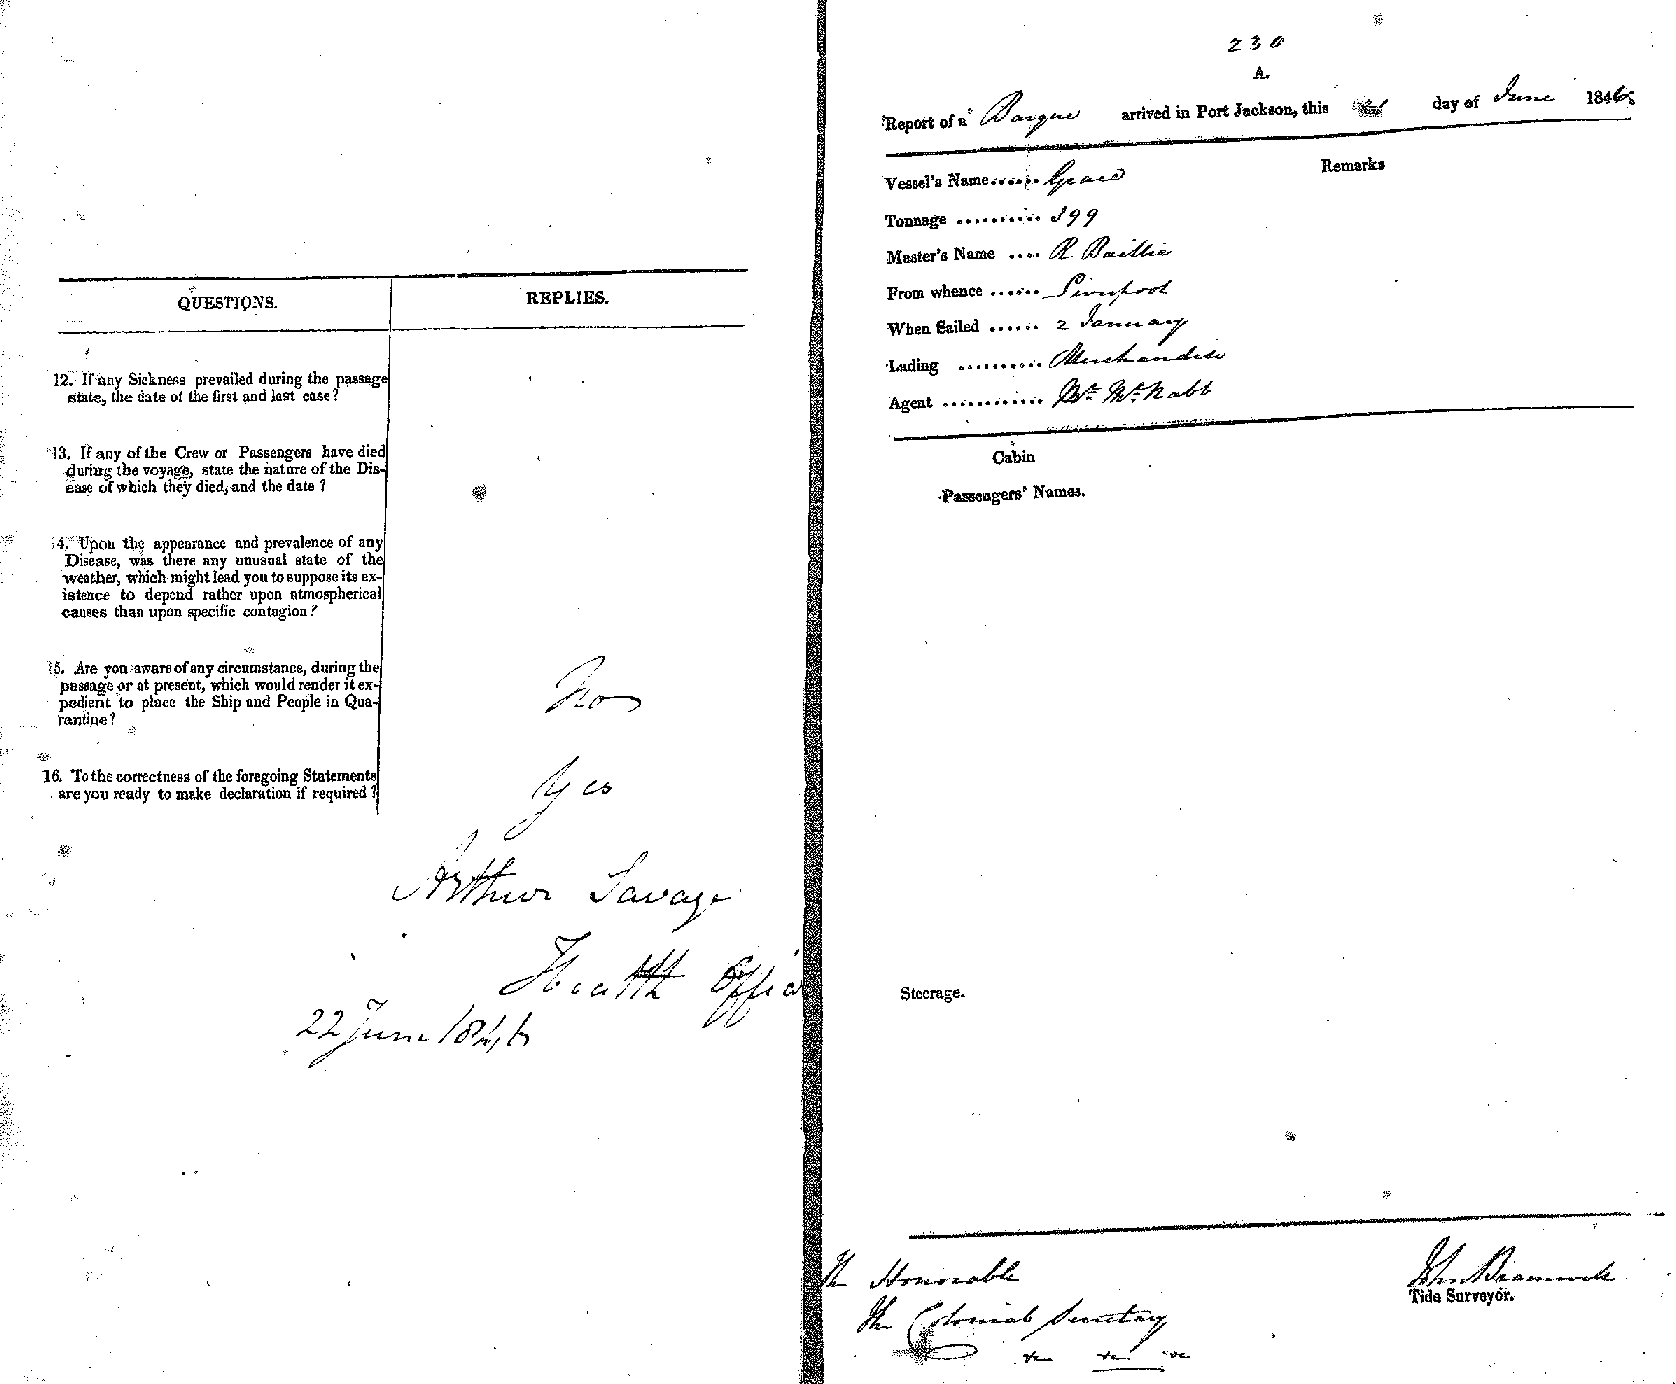 QUESTIONS.
REPLIES.
12. If any Sickness prevailed during the passage
state, the date of the first and last case?
13. If any of the Crew or Passengers have died
during the voyage, state the nature of the Dis-
ease of which they died, and the date?
14. Upon the appearance and prevalence of any
Disease, was there any unusual state of the
weather, which might lead you to suppose its ex-
istence to depend rather upon atmospherical
causes than upon specific contagion?
15. Are you aware of any circumstance, during the
passage or at present, which would render it ex-
pedient to place the Ship and People in Qua-
rantine?
No
16. To the correctness of the foregoing Statements
are you ready to make declaration if required?
Yes
Arthur Savage
Health Offic
22 June 1846
230
A.
Report of a Barque arrived in Port Jackson, this day of June 1846
Remarks
Vessel's Name...... Grace
Tonnage .......... 399
Master's Name .... R. Baillie
From whence ...... Liverpool
When Sailed ...... 2 January
Lading .......... Merchandise
Agent ............ Mr. McNabb
Cabin
Passengers' Names.
Steerage.
The Honorable
The Colonial Secretary
&c &c &c
John Bramwell
Tide Surveyor.